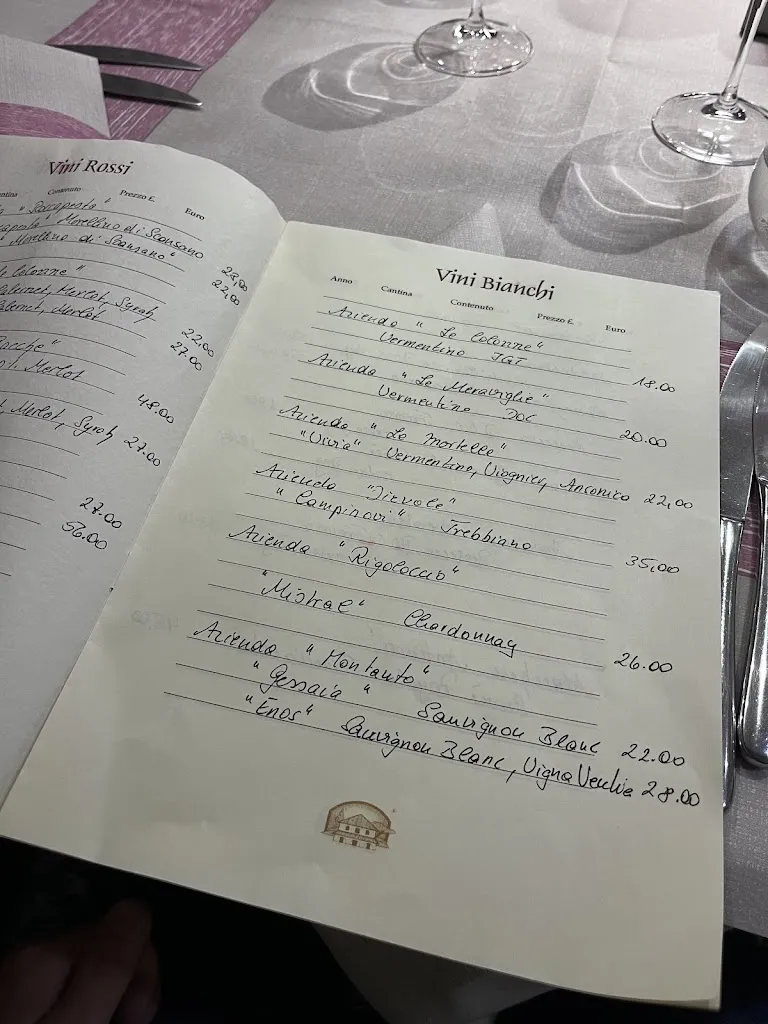 Vini Rossi
Contenuto Prezzo £. Euro
Morellino di Scansano 23,00
"Morellino di Scansano" 22,00
Colonne"
Cabernet, Merlot, Syrah 22.00
Cabernet, Merlot 27.00
Merlot 48.00
Merlot, Syrah 27.00
27.00
56.00
Vini Bianchi
Anno Cantina Contenuto Prezzo £. Euro
Azienda "Le Colonne"
Vermentino IGT 18.00
Azienda "Le Meraviglie"
Vermentino DOC 20.00
Azienda "Le Mortelle"
"Vivia" Vermentino, Viognier, Ansonica 22,00
Azienda
"Campinovi" Trebbiano 35,00
Azienda "Rigoloccio"
"Mistral" Chardonnay 26.00
Azienda "Montauto"
"Gessaia" Sauvignon Blanc 22.00
"Enos" Sauvignon Blanc, Vigna Vecchia 28.00